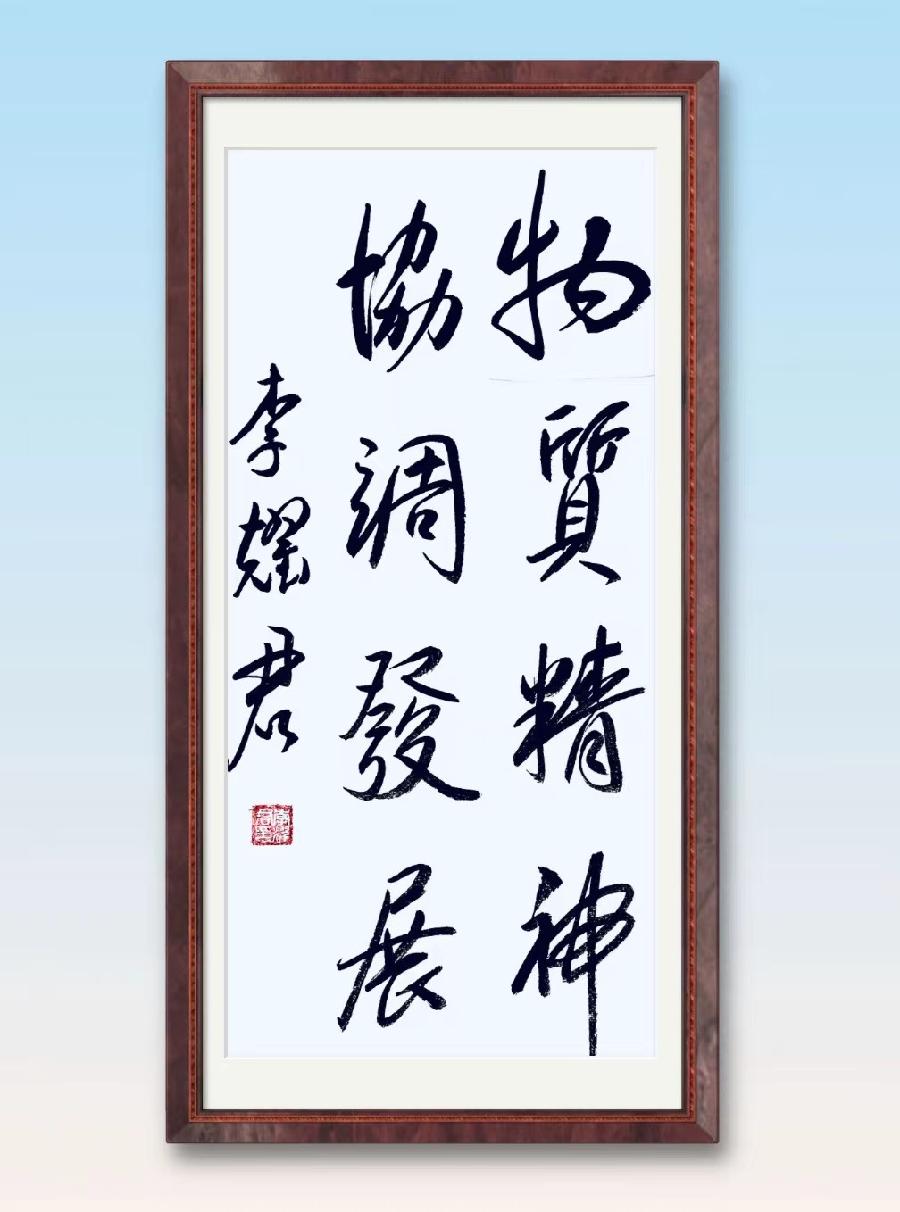 物質精神
協調發展
李耀君